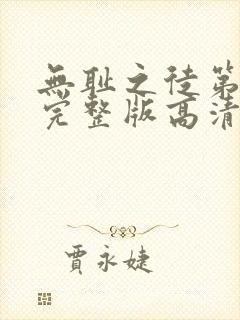 無耻之徒第
完整版高清
賈永婕